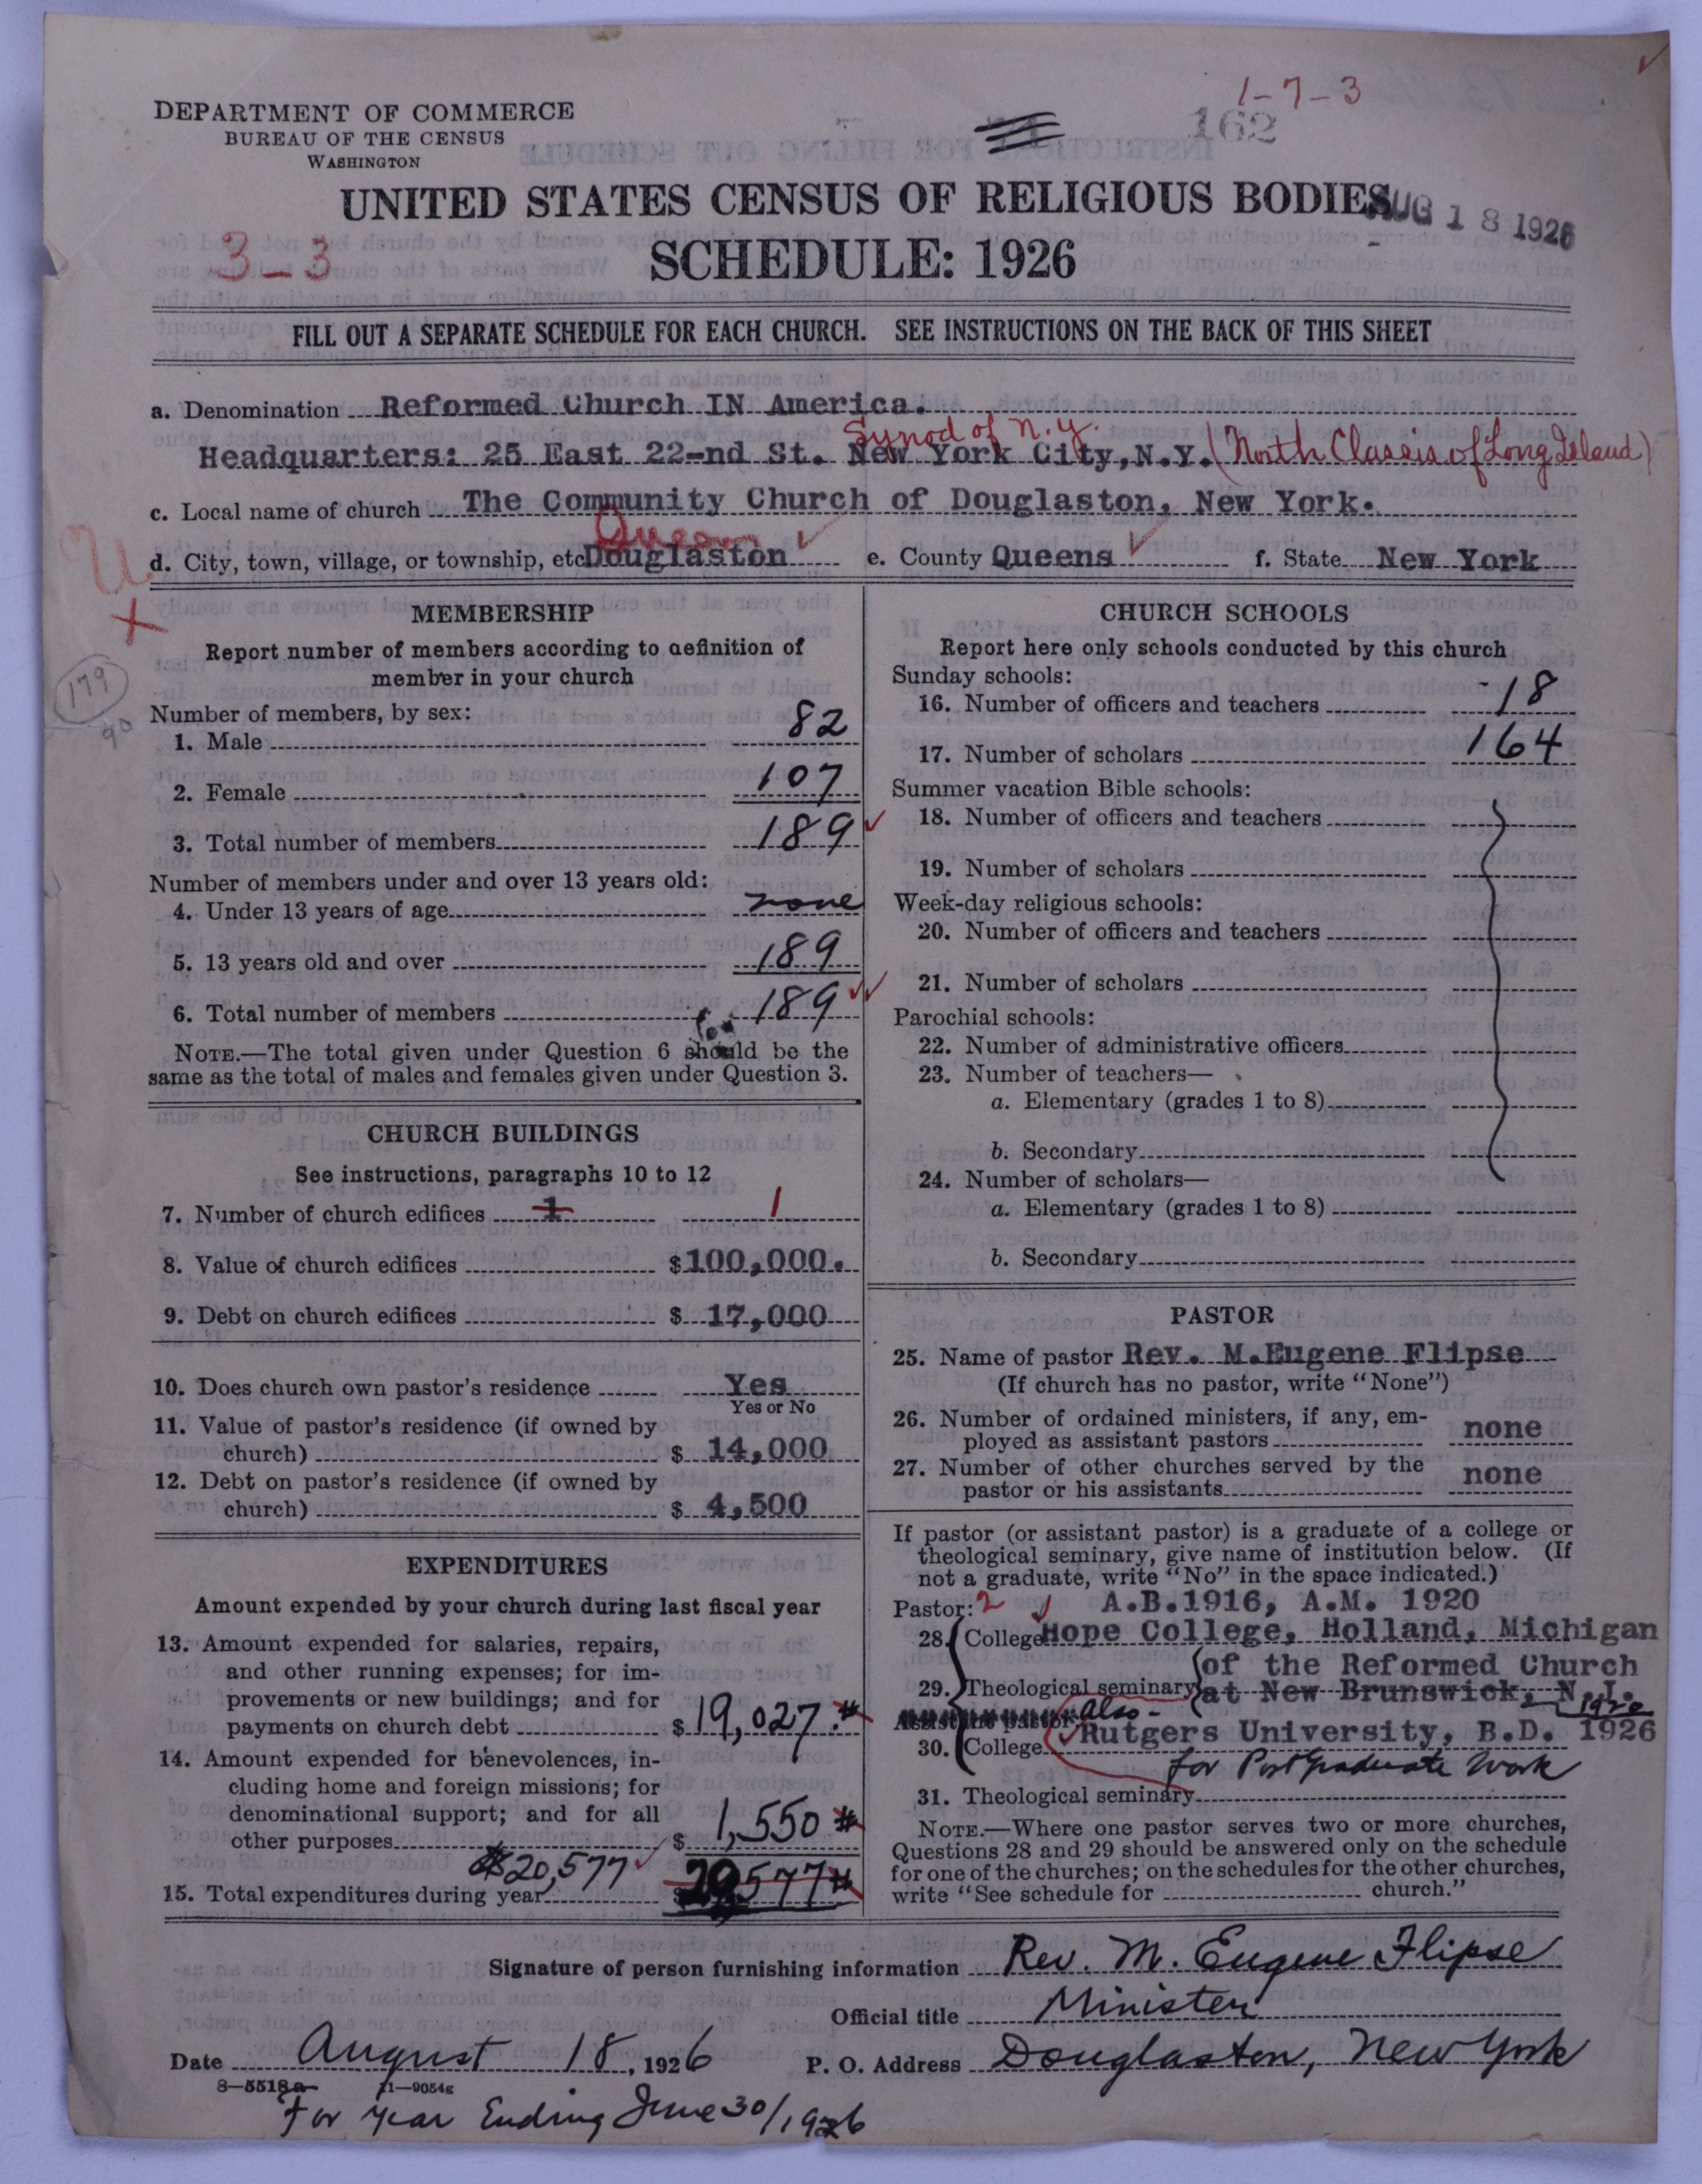 1-7-3
DEPARTMENT OF COMMERCE
BUREAU OF THE CENSUS
WASHINGTON
162
UNITED STATES CENSUS OF RELIGIOUS BODIES
AUG 18 1926
3-3
SCHEDULE: 1926
FILL OUT A SEPARATE SCHEDULE FOR EACH CHURCH. SEE INSTRUCTIONS ON THE BACK OF THIS SHEET
a. Denomination Reformed Church IN America.
Synod of N.Y.
Headquarters: 25 East 22-nd St. New York City, N.Y. (North Classis of Long Island)
c. Local name of church The Community Church of Douglaston, New York.
Queens
d. City, town, village, or township, etc Douglaston e. County Queens f. State New York
MEMBERSHIP
Report number of members according to definition of
member in your church
179
90
Number of members, by sex:
1. Male 82
2. Female 107
3. Total number of members 189
Number of members under and over 13 years old:
4. Under 13 years of age none
5. 13 years old and over 189
6. Total number of members 189
NOTE.—The total given under Question 6 should be the
same as the total of males and females given under Question 3.
CHURCH BUILDINGS
See instructions, paragraphs 10 to 12
7. Number of church edifices 1 1
8. Value of church edifices $100,000.
9. Debt on church edifices $ 17,000
10. Does church own pastor's residence Yes
Yes or No
11. Value of pastor's residence (if owned by
church) $ 14,000
12. Debt on pastor's residence (if owned by
church) $ 4,500
EXPENDITURES
Amount expended by your church during last fiscal year
13. Amount expended for salaries, repairs,
and other running expenses; for im-
provements or new buildings; and for
payments on church debt $ 19,027.#
14. Amount expended for benevolences, in-
cluding home and foreign missions; for
denominational support; and for all
other purposes $ 1,550 #
$20,577
15. Total expenditures during year $ 20,577 #
CHURCH SCHOOLS
Report here only schools conducted by this church
Sunday schools:
16. Number of officers and teachers 18
17. Number of scholars 164
Summer vacation Bible schools:
18. Number of officers and teachers
19. Number of scholars
Week-day religious schools:
20. Number of officers and teachers
21. Number of scholars
Parochial schools:
22. Number of administrative officers
23. Number of teachers—
a. Elementary (grades 1 to 8)
b. Secondary
24. Number of scholars—
a. Elementary (grades 1 to 8)
b. Secondary
PASTOR
25. Name of pastor Rev. M.Eugene Flipse
(If church has no pastor, write "None")
26. Number of ordained ministers, if any, em-
ployed as assistant pastors none
27. Number of other churches served by the
pastor or his assistants none
If pastor (or assistant pastor) is a graduate of a college or
theological seminary, give name of institution below. (If
not a graduate, write "No" in the space indicated.)
Pastor: 2 A.B.1916, A.M. 1920
28. College Hope College, Holland, Michigan
of the Reformed Church
29. Theological seminary at New Brunswick, N.J.
1920
Assistant pastor: also-
30. College Rutgers University, B.D. 1926
for Post Graduate Work
31. Theological seminary
NOTE.—Where one pastor serves two or more churches,
Questions 28 and 29 should be answered only on the schedule
for one of the churches; on the schedules for the other churches,
write "See schedule for church."
Signature of person furnishing information Rev. M. Eugene Flipse
Official title Minister
Date August 18, 1926 P. O. Address Douglaston, New York
8-5518a 11-9054g
For Year Ending June 30/1926